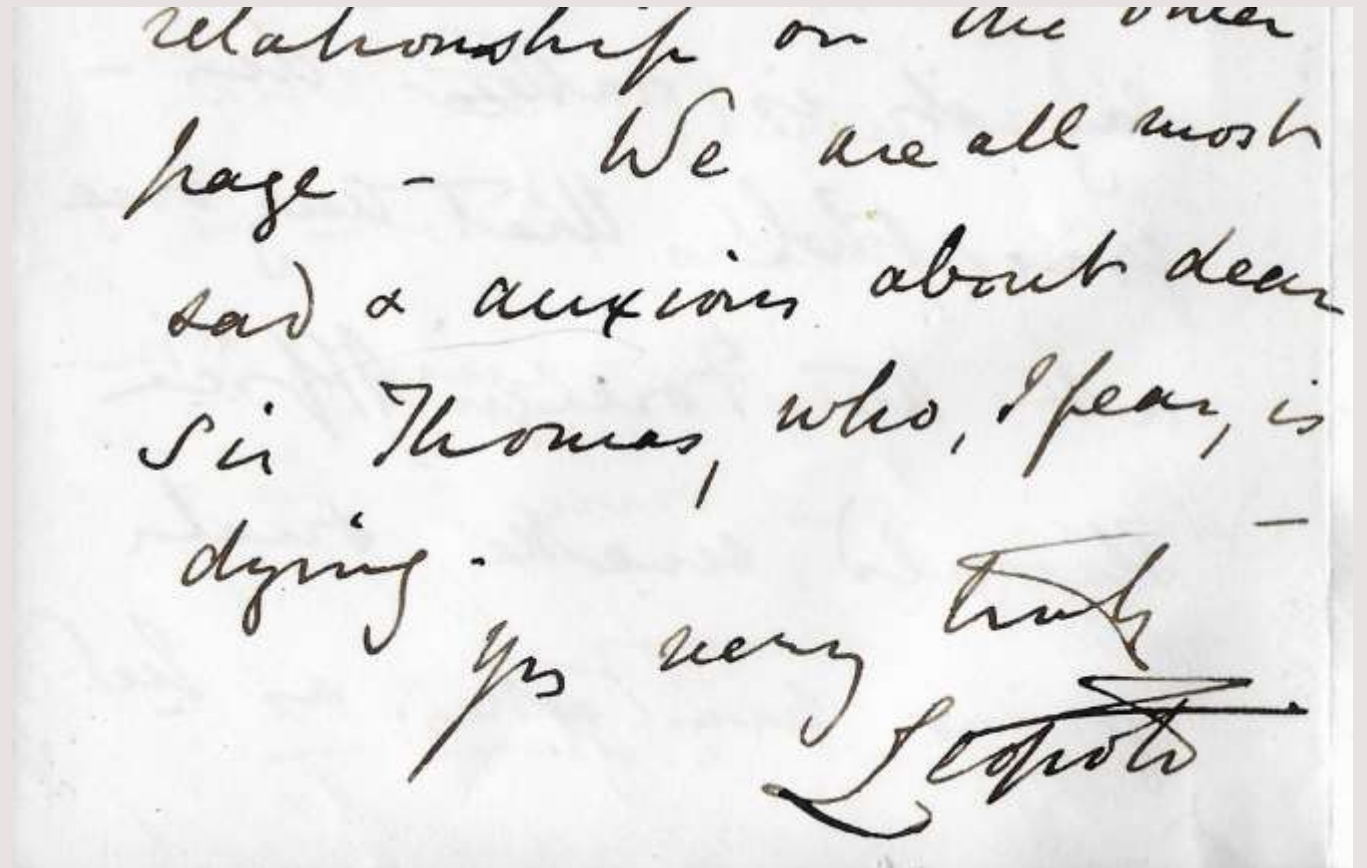 relationship on the other
page - We are all most
sad & anxious about dear
Sir Thomas, who, I fear, is
dying. -
Yrs very truly
Leopold